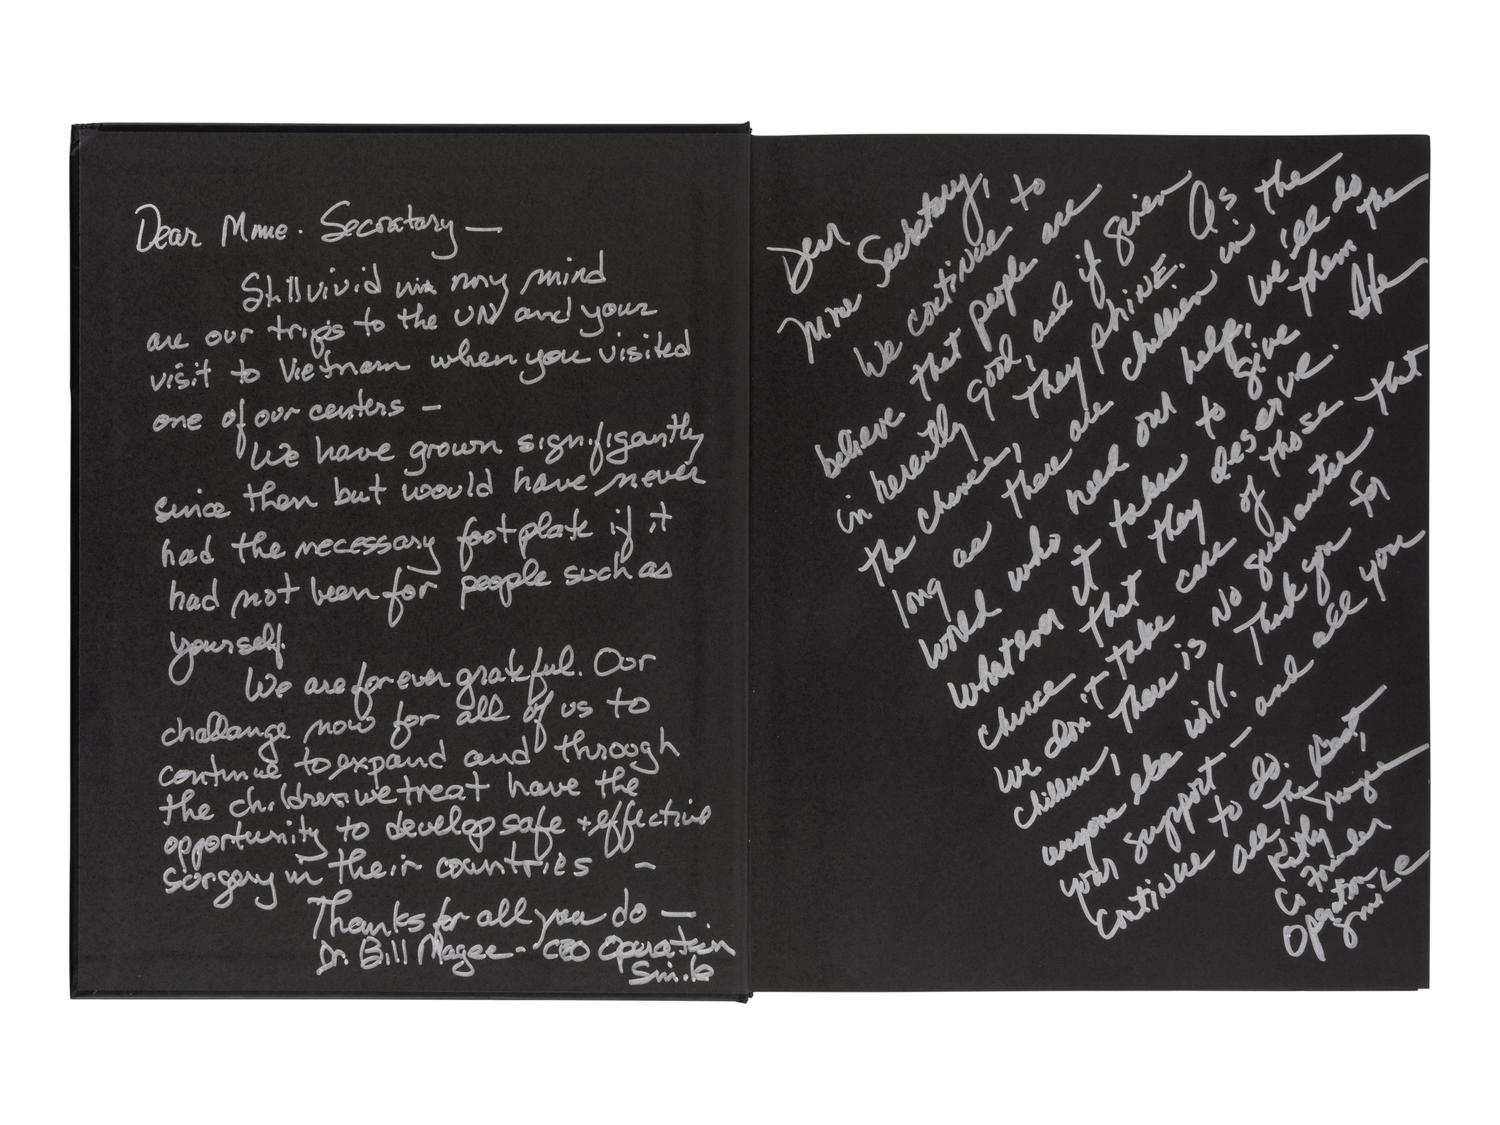 Dear Mme. Secretary —
Still vivid in my mind
are our trips to the UN and your
visit to Vietnam when you visited
one of our centers —
We have grown significantly
since then but would have never
had the necessary footplate if it
had not been for people such as
yourself.
We are forever grateful. Our
challenge now for all of us to
continue to expand and through
the children we treat have the
opportunity to develop safe + effective
surgery in their countries —
Thanks for all you do —
Dr. Bill Magee - CEO Operation
Smile
Dear
Mme Secretary,
We continue to
believe that people are
inherently good, and if given
the chance, they SHINE. As
long as there are children in the
world who need our help, we'll do
whatever it takes to give them the
chance that they deserve. life
we don't take care of those that
children, there is NO guarantee
anyone else will. Thank you for
your support — and all you
continue to do.
All the Best,
Kathy Magee
Co Founder
Operation
Smile